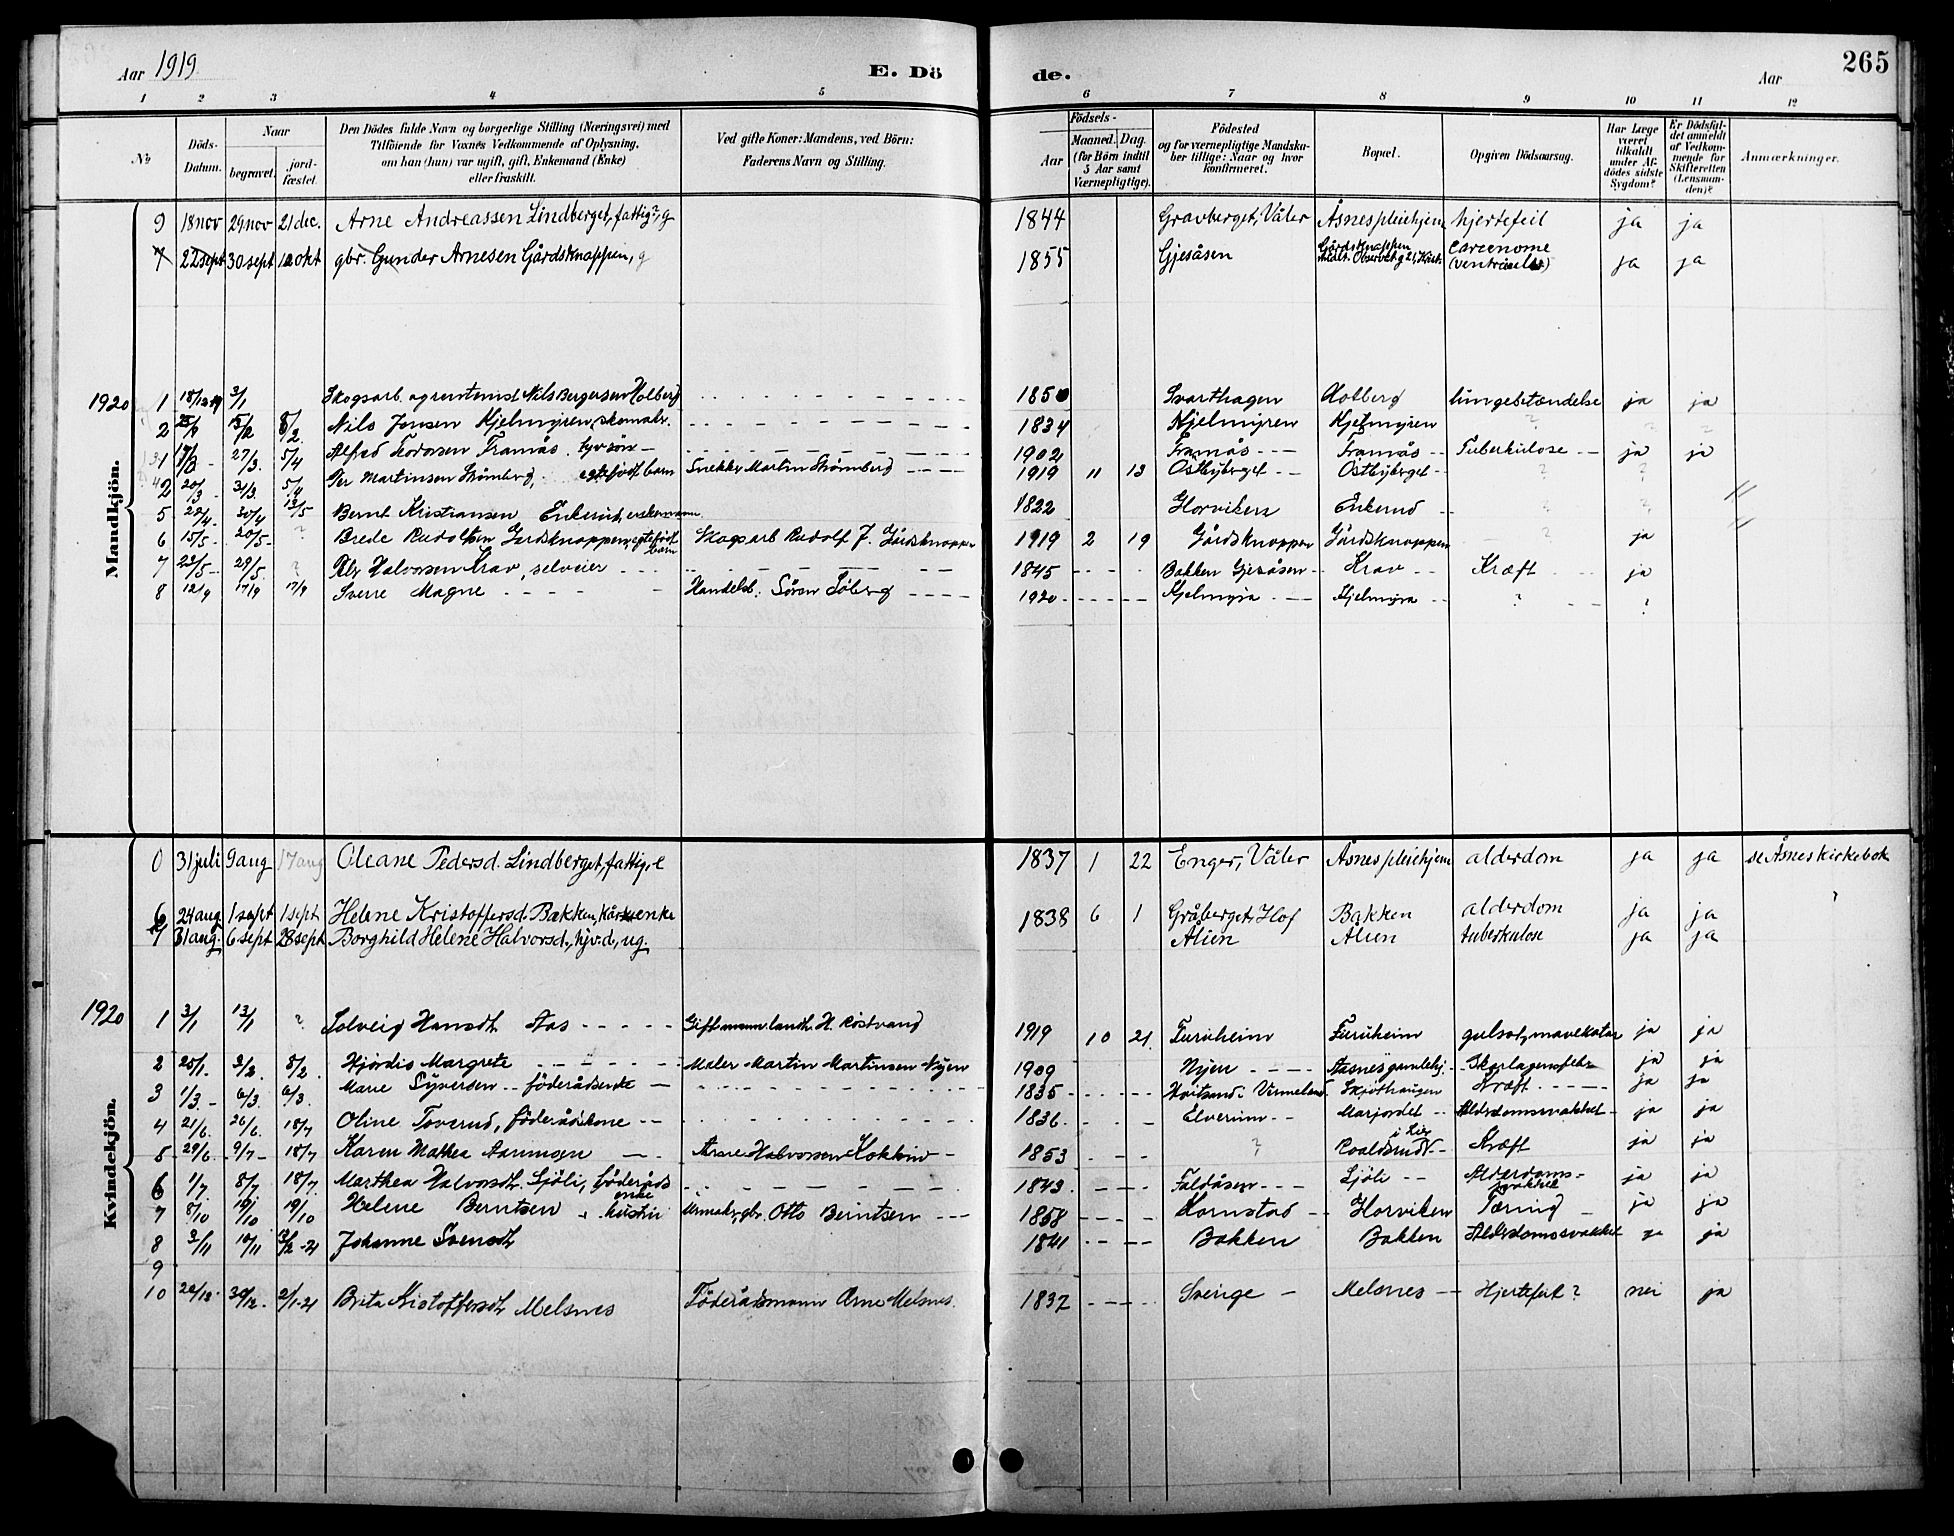 Aar 1919 E. Dö de. Aar 265
1 2 3 4 5 6 7 8 9 10 11 12
No
Döds-Datum.
Naar
begravet.
jord-fæstet.
Den Dödes fulde Navn og borgerlige Stilling (Næringsvei) med
Tilföiende for Voxnes Vedkommende af Oplysning,
om han (hun) var ugift, gift, Enkemand (Enke)
eller fraskilt.
Ved gifte Koner: Mandens, ved Börn:
Faderens Navn og Stilling.
Födsels-
Aar
Maaned. Dag.
(for Börn indtil
5 Aar samt
Værnepligtige).
Födested
og for værnepligtige Mandska-
ber tillige: Naar og hvor
konfirmeret.
Bopæl.
Opgiven Dödsaarsag.
Har Læge
været
tilkaldt
under Af-
dödes sidste
Sygdom?
Er Dödsfal-
det anmeldt
af Vedkom-
mende for
Skifteretten
(Lensman-
den)?
Anmærkninger.
Mandkjön.
9 18 nov 29 nov 21 dec. Arne Andreassen Lindberget, fattig?, g 1844 Gravberget, Våler Åsnes pleiehjem hjertefeil ja ja
7 22 sept 30 sept 12 okt gbr. Gunder Arnesen Gårdsknappen, g 1855 Gjesåsen Gårdsknappen Carcenome (ventriculi) ja ja
1920 1 18/12 19 3/1 Skogsarb. og rentenist Nils Bergersen Holberg 1850 Svarthagen Holberg lungebetændelse ja ja
2 25/1 5/2 8/2 Nils Jonsen Hjelmyren, skomaker. 1834 Hjelmyren Hjelmyren ? ? ?
27/3. 5/4 Alfred Framås. tyv. søn 1902 Framås Framås Tuberkulose ja ja
20/3 31/3. 5/4 Per Martinsen Strømberg, egtefødt barn Snekker Martin Strømberg 1919 11 13 Østbyberget Østbyberget ? ?
5 22/4 30/4 13/5 Bernt Kristiansen Enkerud, enkemann 1822 Horviken Enkerud ? ? //
6 15/5 20/5 ? Brede Rudolfsen Gårdsknappen, egtefødt barn Skogsarb Rudolf J. Gårdsknappen 1919 2 19 Gårdsknappen Gårdsknappen ? ja //
7 23/5 29/5. ? Halvorsen Krav, selveier 1845 Bakken Gjesåsen Krav Kræft ja
8 12/9 17/9 17/9 Sverre Magne Handelsb. Sören Töberg 1920 Hjelmyra Hjelmyra ? ?
Kvindekjön.
0 31 juli 9 aug 17 aug Oleane Pedersd. Lindberget, fattig, e 1837 1 22 Enger, Våler Åsnes pleiehjem alderdom ja ja se Åsnes kirkebok
6 24 aug 1 sept 1 sept Helene Kristoffersd. Bakken, kårenke 1838 6 1 Gråberget, Hof Bakken alderdom ja ja
7 31 aug. 6 sept 28 sept Borghild Helene Halvorsd., hjv. d., ug. Alien Alien tuberkulose ja ja
1920 1 3/1 13/1 ? Solveig Hansdt Aas Gift mann landh. H. Röstvand 1919 10 21. Furuheim Furuheim gulsot, mavekatar ja ja
2 25/1. 3/2. 8/2. Hjördis Margrete Maler Martin Martinsen Nyen 1909 Nyen Aasnes gamlehj. Skarlagensfeber ja ja
3 1/3. 6/3. 6/3. Marie Syversen föderådsenke 1835 Vermeland Skjöthaugen Kræft ja ja
4 21/6. 26/6. 18/7 Oline Toverud, föderådskone 1836. Elverum Marjordet Alderdomssvakhet ja ja
5 29/6. 9/7 18/7 Karen Mathea Aamogn Arne Halvorsen Kokkin 1853 ? Roaldsrud i Lier Kræft ja ja
6 1/7. 8/7 18/7. Marthea Halvorsdt. Sjöli, föderåds enke 1843. Faldåsen Sjöli Alderdoms-svakhet ja ja
7 8/10 19/10 19/10 Helene Berntsen, hustru Urmaker, gbr. Otto Berntsen 1858 Kornstad Horviken Tæring ja ja
8 3/11 10/11 3/2-21 Johanne Svensdt 1841 Bakken Bakken Alderdomssvakhet ja ja
9
10 20/12. 30/12. 2/1-21 Brita Kristoffersdt Melsnes Föderådsmann Arne Melsnes. 1837 Svinge Melsnes Hjertefeil? nei ja